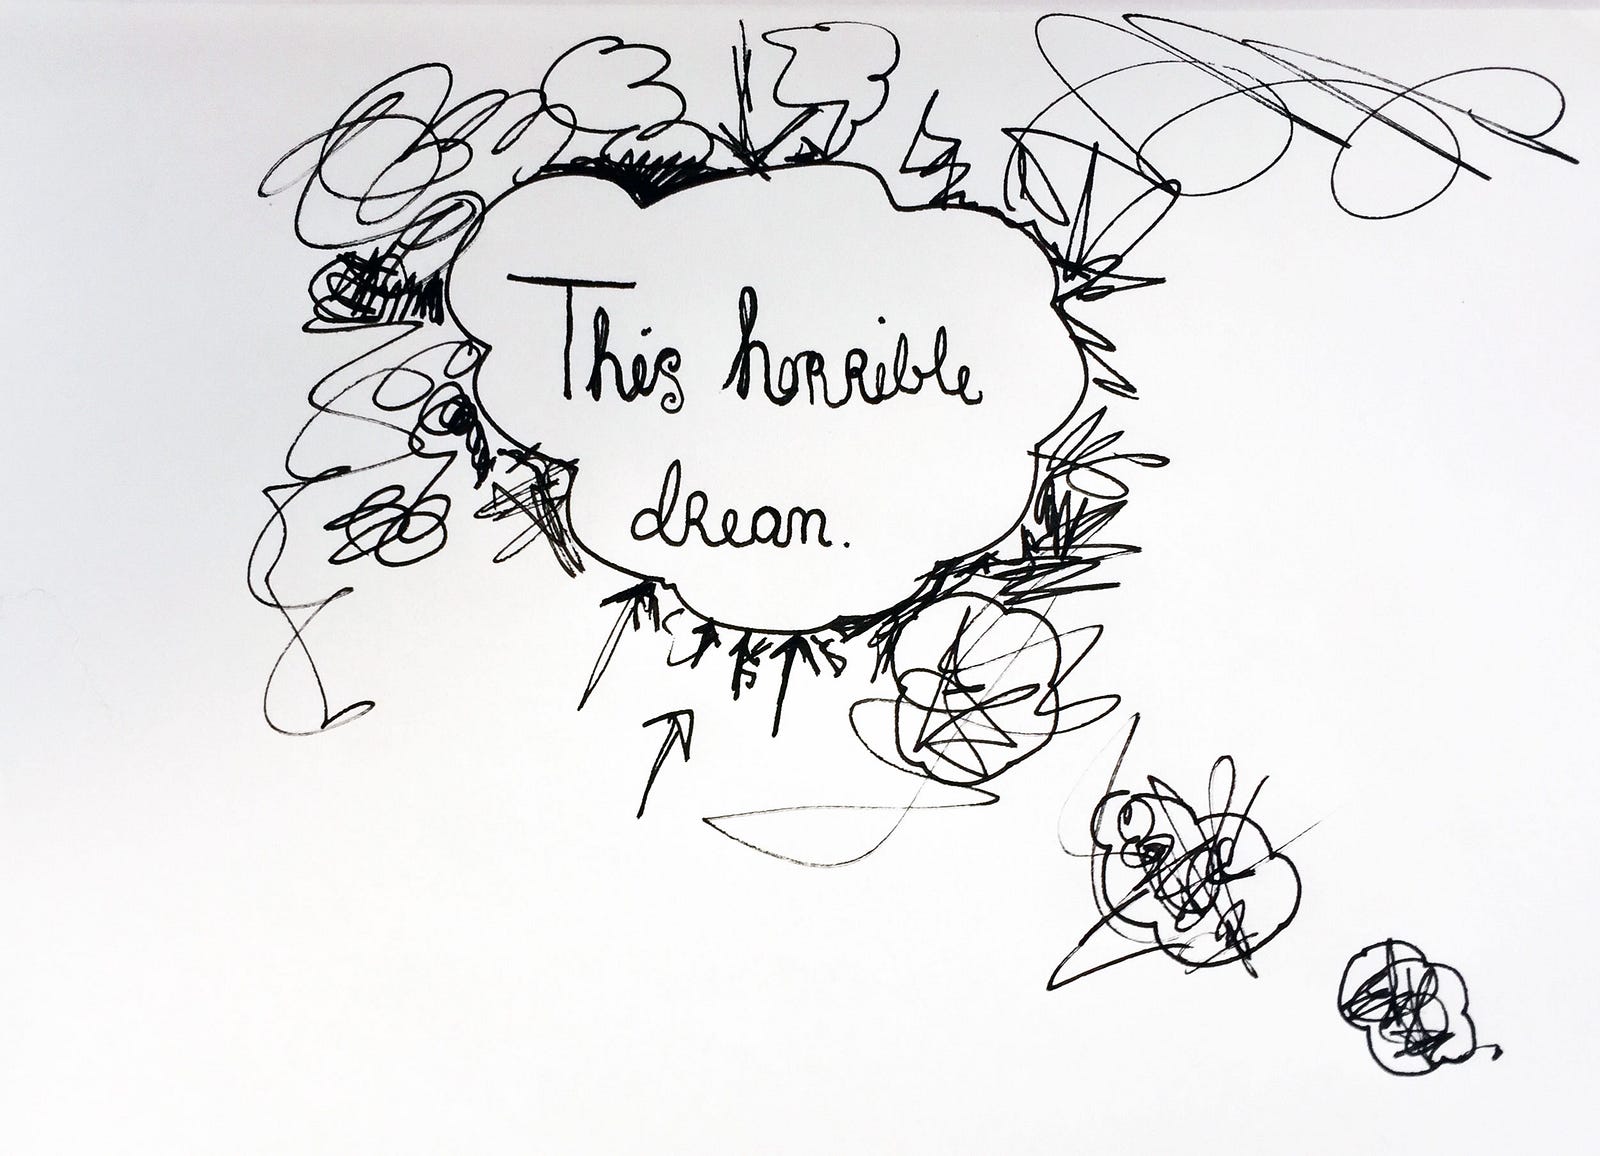 This horrible
drean.